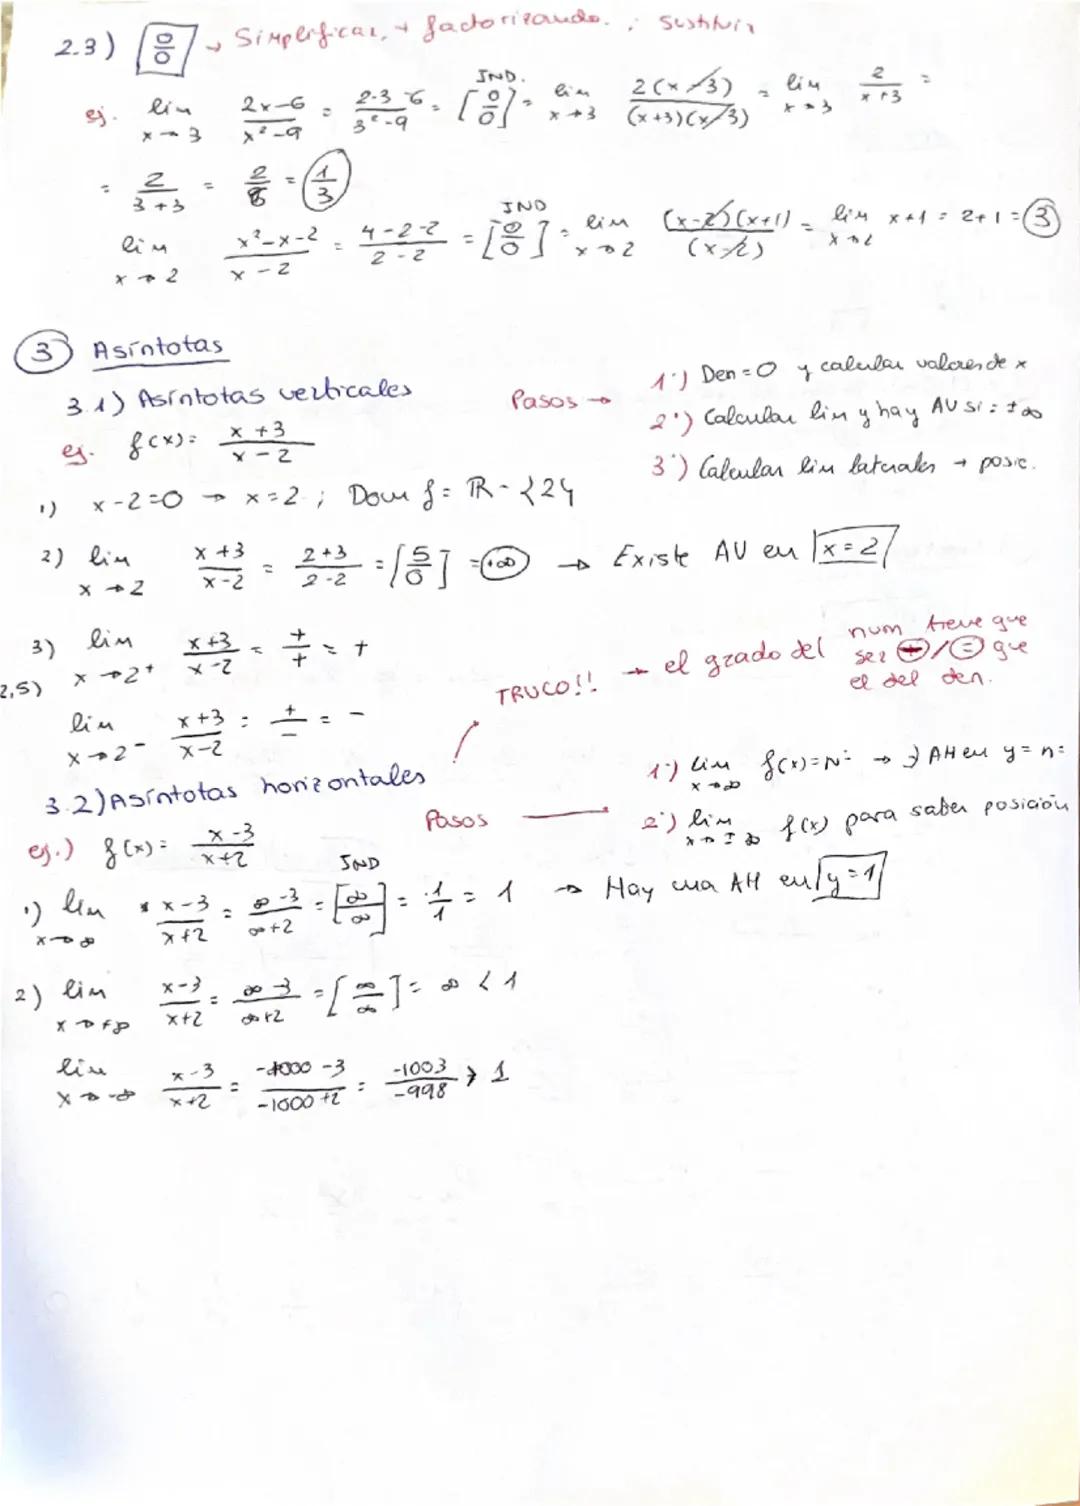 2.3) [0/0] → Simplificar, → factorizando. ; sustituir
ej. lim x→3 2x-6/x²-9 = 2·3-6/3²-9 = [0/0] IND. = lim x→3 2(x-3)/(x+3)(x-3) = lim x→3 2/x+3 =
= 2/3+3 = 2/6 = 1/3
lim x→2 x²-x-2/x-2 = 4-2-2/2-2 = [0/0] IND = lim x→2 (x-2)(x+1)/(x-2) = lim x→2 x+1 = 2+1 = 3
3 Asíntotas
3.1) Asíntotas verticales
Pasos →
1º) Den = 0 y calcular valores de x
2º) Calcular lim y hay AV si = ±∞
3º) Calcular lim laterales → posic.
ej. f(x) = x+3/x-2
1) x-2=0 → x=2 ; Dom f = R - {2}
2) lim x→2 x+3/x-2 = 2+3/2-2 = [5/0] = ∞ → Existe AV en x=2
3) lim x→2+ x+3/x-2 = +/+ = +
2,5)
lim x→2- x+3/x-2 = +/- = -
TRUCO!! → el grado del num tiene que
ser /= que
el del den.
3.2) Asíntotas horizontales
Pasos
1º) lim x→∞ f(x) = Nº → ∃ AH en y = nº
2º) lim x→±∞ f(x) para saber posición
ej.) f(x) = x-3/x+2
1) lim x→∞ x-3/x+2 = ∞-3/∞+2 = [∞/∞] IND = 1/1 = 1 → Hay una AH en y=1
2) lim x→+∞ x-3/x+2 = ∞-3/∞+2 = [∞/∞] = ∞ < 1
lim x→-∞ x-3/x+2 = -1000-3/-1000+2 = -1003/-998 > 1